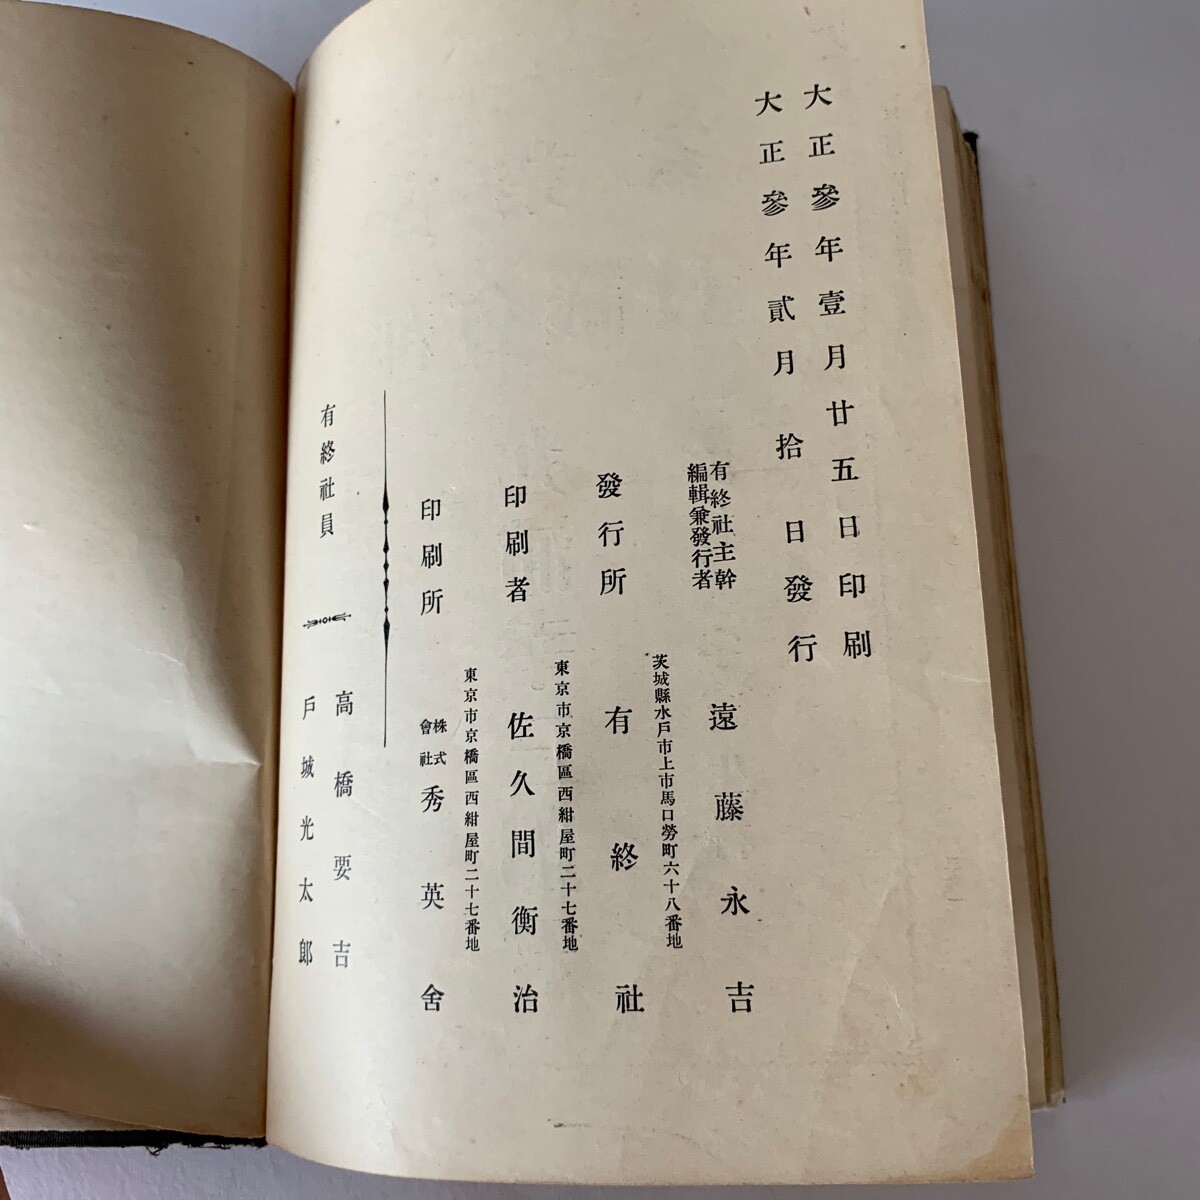 大正參年壹月廿五日印刷
大正參年貳月拾日發行
有終社主幹
編輯兼發行者
遠藤永吉
茨城縣水戶市上市馬口勞町六十八番地
發行所
有終社
東京市京橋區西紺屋町二十七番地
印刷者
佐久間衡治
東京市京橋區西紺屋町二十七番地
印刷所
株式會社
秀英舍
有終社員
高橋要吉
戶城光太郎